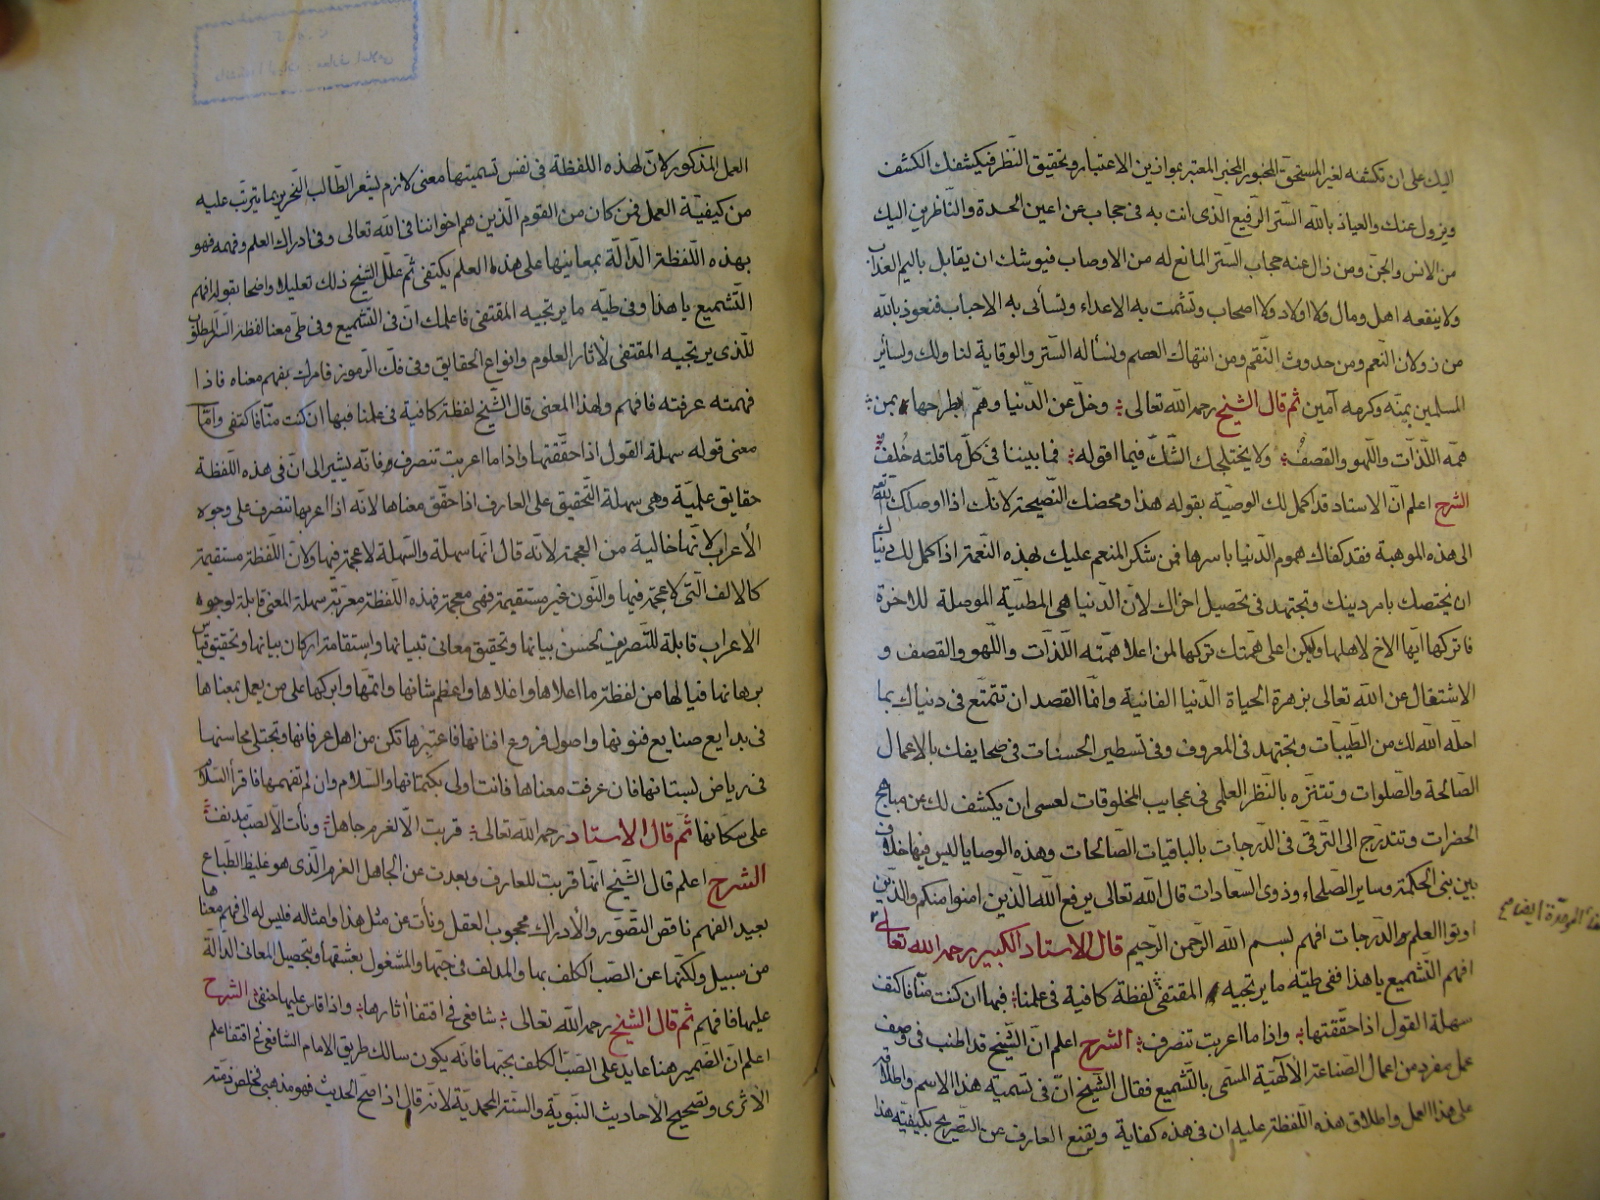 اليك على ان تكشفه لغير المستحق المخبور المجبر المعتبر بموازين الاعتبار وتحقيق النظر فيكشفك الكشف
ويزول عنك والعياذ بالله الستر الرفيع الذى انت به فى حجاب عن اعين الحسدة والناظرين اليك
من الانس والجن ومن زال عنه حجاب الستر المانع له من الاوصاب فيوشك ان يقابل باليم العذاب
ولا ينفعه اهل ومال ولا اولاد ولا اصحاب وتشمت به الاعداء وتسأى به الاحباب فنعوذ بالله
من زولان النعم ومن حدوث النقم ومن انتهاك العصم ونسأله الستر والوقاية لنا ولك ولسائر
المسلمين بمنه وكرمه آمين ثم قال الشيخ رحمه الله تعالى وخل عن الدنيا وهم بطراحها بمن
همه اللذات واللهو والقصف ولا يختلجك الشك فيما اقوله فما بيننا فى كل ما قلته خلف
الشرح اعلم ان الاستاد قد اكمل لك الوصية بقوله هذا ومحضك النصيحة لانك اذا اوصلك الله
الى هذه الموهبة فقد كفاك هموم الدنيا باسرها فمن شكر المنعم عليك لهذه النعمة اذا كمل لك دنياك
ان يختصك بامر دينك وتجتهد فى تحصيل اخراك لان الدنيا هى المطية الموصلة للاخرة
فاتركها ايها الاخ لاهلها وليكن اعلى همتك تركها لمن اعلا همته اللذات واللهو والقصف و
الاشتغال عن الله تعالى بزهرة الحياة الدنيا الفانية وانما القصد ان تتمتع فى دنياك بما
احله الله لك من الطيبات وتجتهد فى المعروف وفى تسطير الحسنات فى صحايفك بالاعمال
الصالحة والصلوات وتتنزه بالنظر العلمى فى عجايب المخلوقات لعسى ان يكشف لك عن مباهج
الحضرات وتتدرج الى الترقى فى الدرجات بالباقيات الصالحات وهذه الوصايا ليس فيها خلاف
بين بنى الحكمة وساير الصلحاء وذوى السعادات قال الله تعالى يرفع الله الذين امنوا منكم والذين
اوتوا العلم درجات افهم بسم الله الرحمن الرحيم قال الاستاد الكبير رحمه الله تعالى
افهم التشميع يا هذا ففى طيه ما يرتجيه المقتفى لفظة كافية فى علمنا فيها ان كنت منا فاكتف
سهلة القول اذا حققتها واذا ما اعربت تنصرف الشرح اعلم ان الشيخ قد اطنب فى وصف
عمل مفرد من اعمال الصناعة الالهية المسمى بالتشميع فقال الشيخ ان فى تسمية هذا الاسم واطلاقه
على هذا العمل واطلاق هذه اللفظة عليه ان فى هذه كفاية ويقنع العارف عن التصريح بكيفية هذا
العمل المذكور لان لهذه اللفظة فى نفس تسميتها معنى لازم ليشعر الطالب النحرير بما يترتب عليه
من كيفية العمل فمن كان من القوم الذين هم اخواننا فى الله تعالى وفى ادراك العلم وفهمه فهو
بهذه اللفظة الدالة بمعانيها على هذا العلم يكتفى ثم علل الشيخ ذلك تعليلا واضحا بقوله افهم
التشميع يا هذا وفى طيه ما يرتجيه المقتفى فاعلمك ان فى التشميع وفى طى معنا لفظة السر المطلوب
للذى يرتجيه المقتفى لاثار العلوم وانواع الحقايق وفى فك الرموز فامرك بفهم معناه فاذا
فهمته عرفته فافهم ولهذا المعنى قال الشيخ لفظة كافية فى علمنا فيها ان كنت منا فاكتفى واما
معنى قوله سهلة القول اذا حققتها واذا ما اعربت تنصرف فانه يشير الى ان فى هذه اللفظة
حقايق علمية وهى سهلة التحقيق على العارف اذا حقق معناها لانه اذا اعربها تنصرف على وجوه
الأعراب لانها خالية من العجمة لانه قال انها سهلة والسهلة لا عجمة فيها ولان اللفظة مستقيمة
كالالف التى لا عجمة فيها والنون غير مستقيمة فهى معجمة فهذه اللفظة معربة سهلة المعنى قابلة لوجوه
الاعراب قابلة للتصريف لحسن بيانها وتحقيق معانى تبيانها واستقامة اركان بيانها وتحقيق قياس
برهانها فيا لها من لفظة ما اعلاها واغلاها واعظم شانها واتمها وابركها على من يعمل بمعناها
فى بدايع صنايع فنونها واصول فروع افنانها فاعتبرها تكن من اهل عرفانها وتجتلى محاسنها
فى رياض بستانها فان عرفت معناها فانت اولى بكتمانها والسلام وان لم تفهمها فاقرأ السلام
على سكانها ثم قال الاستاد رحمه الله تعالى قربت الا لغرم جاهل ونأت الا لصب مدنف
الشرح اعلم قال الشيخ انها قربت للعارف وبعدت عن الجاهل الغرم الذى هو غليظ الطباع
بعيد الفهم ناقص التصور والأدراك محجوب العقل ونأت عن مثل هذا وامثاله فليس له الى فهم معناها
من سبيل ولكنها عن الصب الكلف بها والمدنف فى حبها والمشغول بعشقها وبتحصيل المعانى الدالة
عليها فافهم ثم قال الشيخ رحمه الله تعالى شافعى فى اقتفا اثارها واذا قاس عليها حنفى الشرح
اعلم ان الضمير هنا عايد على الصب الكلف بحبها فانه يكون سالك طريق الامام الشافعى فى اقتفا علم
الاثرى وتصحيح الاحاديث النبوية والسنة المحمدية لانه قال اذا صح الحديث فهو مذهبى فخلص ذمته